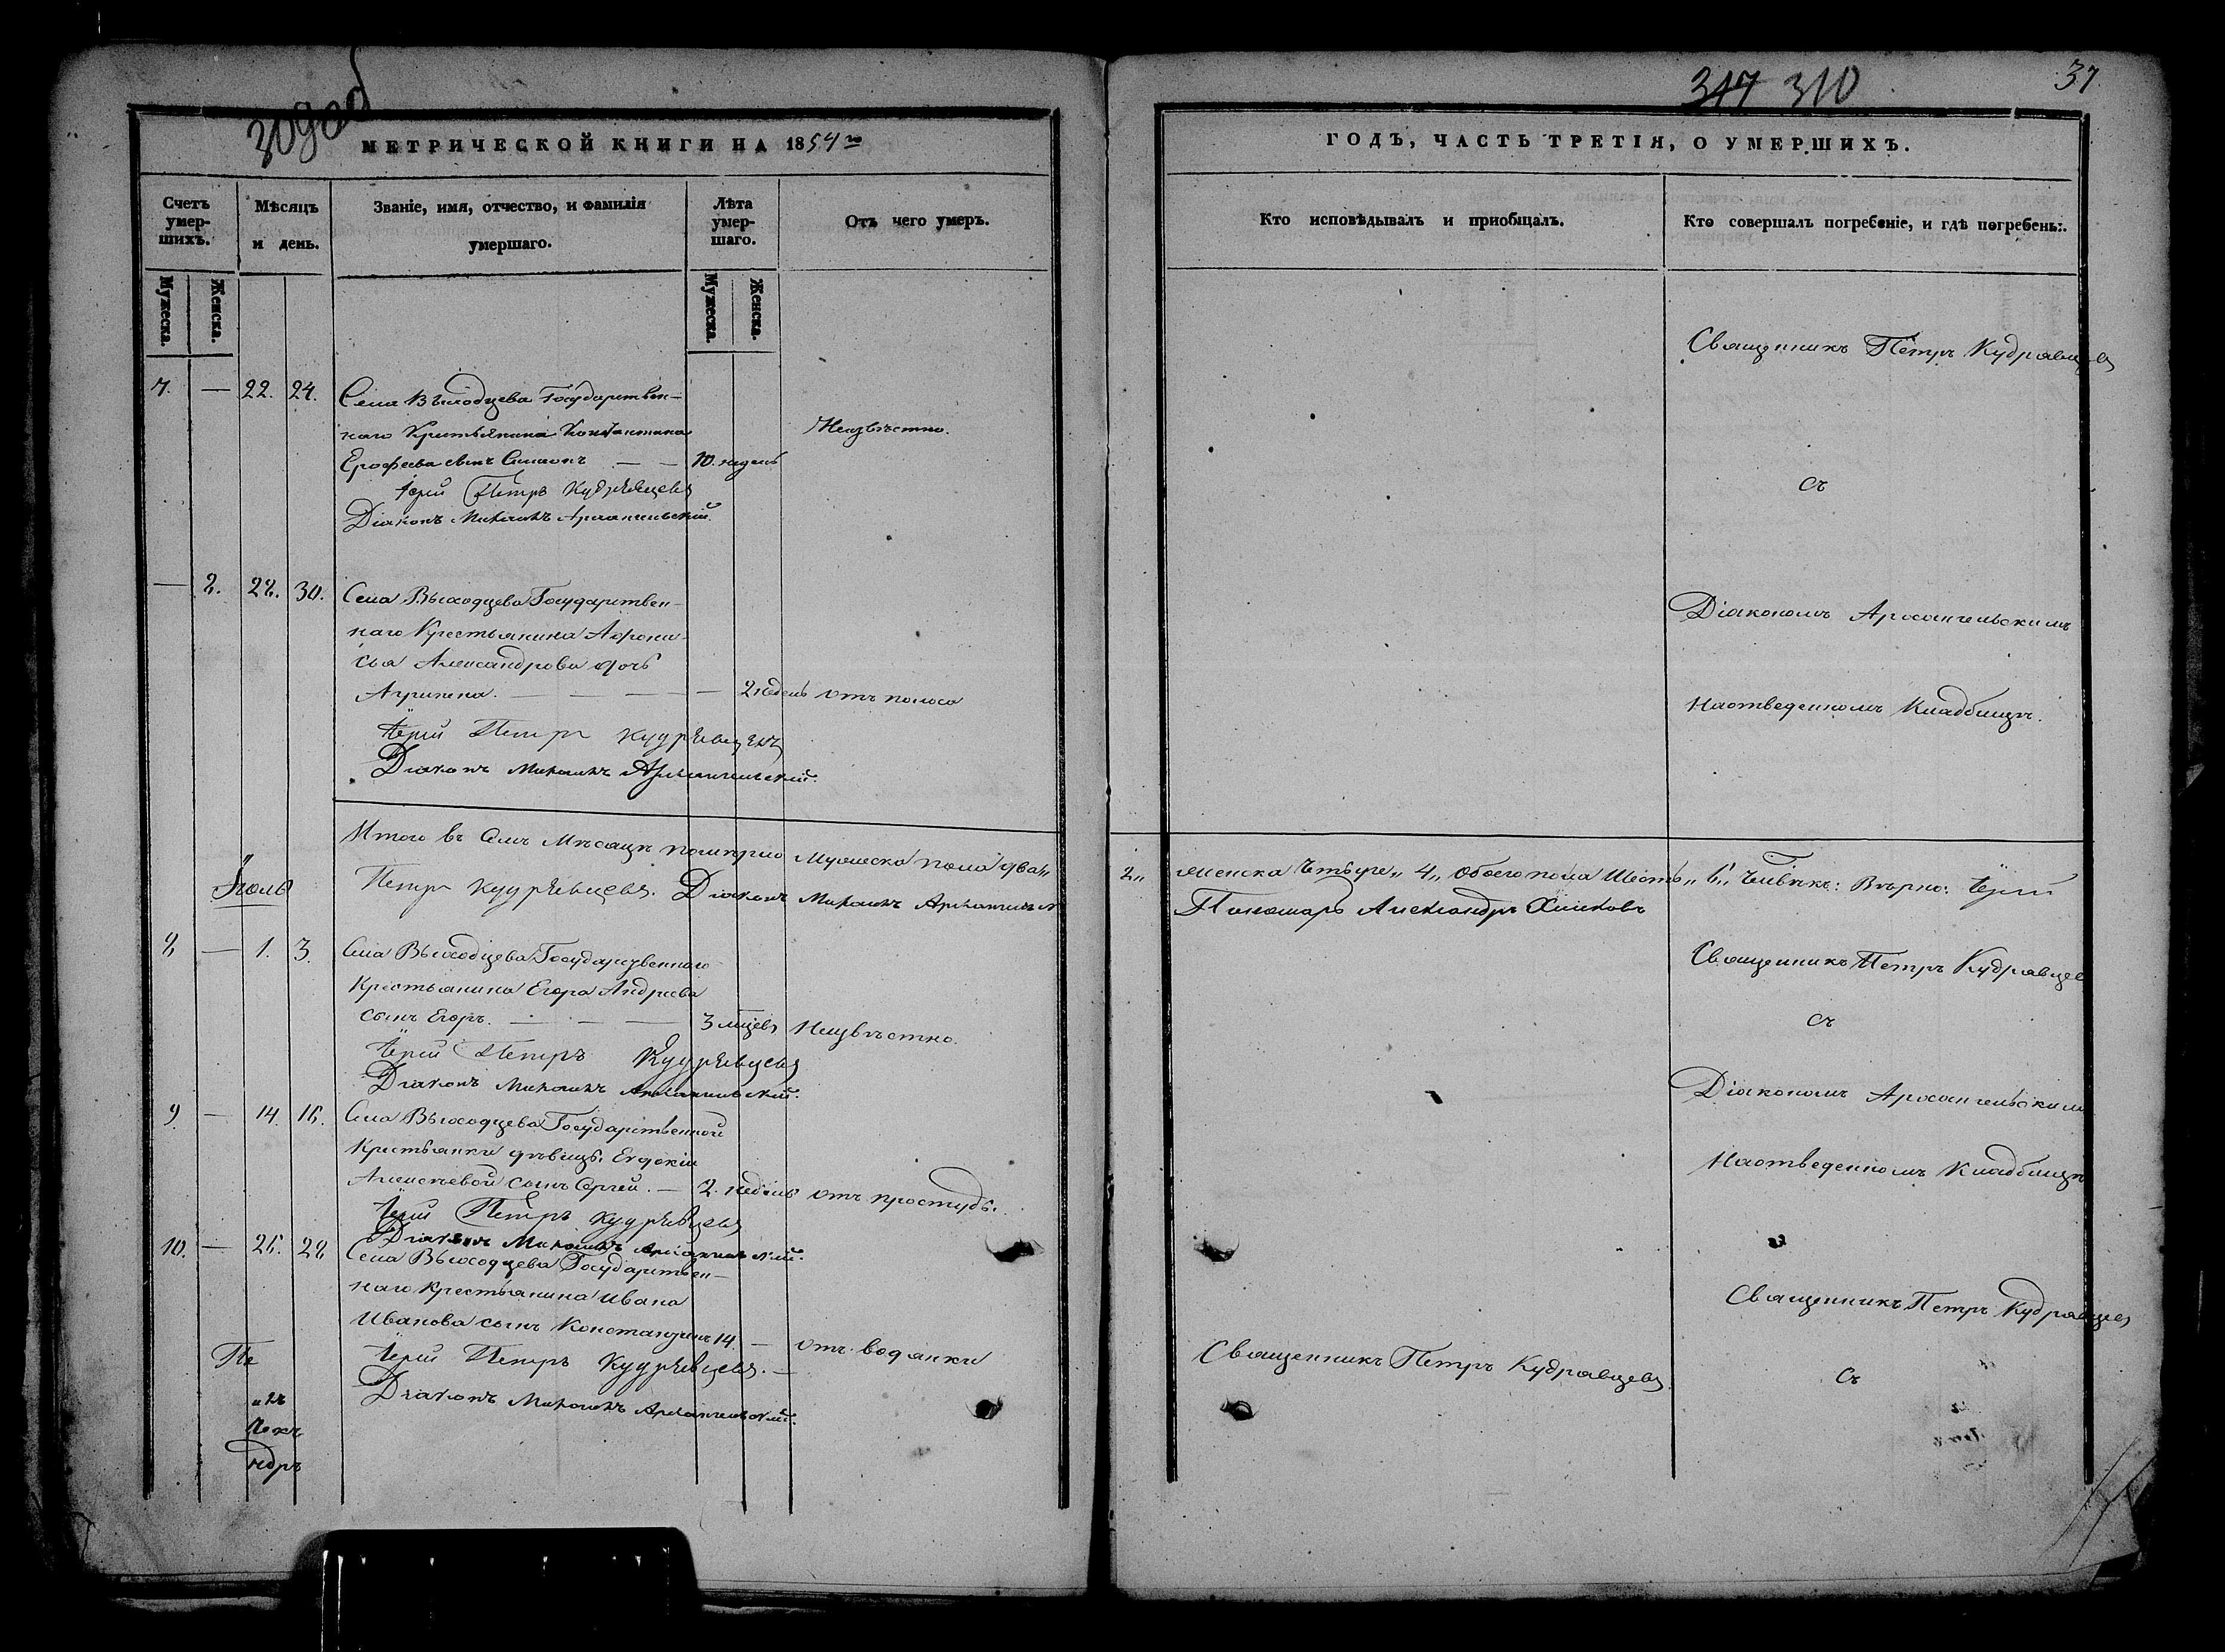 309об
МЕТРИЧЕСКОЙ КНИГИ НА 1854 го
Счетъ умер-шихъ.
Мѣсяцъ и день.
Званіе, имя, отчество, и фамилія умершаго.
Лѣта умер-шаго.
Отъ чего умеръ.
Мужеска.
Женска.
Мужеска.
Женска.
7. — 22. 24. Села Выходцева Государствен-
наго Крестьянина Константина
Неизвѣстно.
Ерофеева сынъ Симеонъ — — 10. недель
Іерей Петръ Кудрявцевъ
Діаконъ Михаилъ Архангельскій.
— 8. 28. 30. Села Выходцева Государствен-
наго Крестьянина Афона-
сья Александрова дочь
Агрипена. — — — — 2 недель отъ полоса
Іерей Петръ Кудрявцевъ
Діаконъ Михаилъ Архангельскій.
Итого въ Семъ Мѣсяцѣ померло Мужеска пола два„
Іюль
Петръ Кудрявцевъ. Діаконъ Михаилъ
8 — 1. 3. Села Выходцева Государственнаго
Крестьянина Егора Андреева
сынъ Егоръ. — — — 3 Неизвѣстно.
Іерей Петръ Кудрявцевъ
Діаконъ Михаилъ Архангельскій.
9 — 14. 16. Села Выходцева Государственной
Крестьянки дѣвицы Евдокіи
Алексѣевой сынъ Сергей. — 2. недель отъ простуды.
Іерей Петръ Кудрявцевъ
Діаконъ Михаилъ Архангельскій.
10. — 26. 28 Села Выходцева Государствен-
наго Крестьянина Ивана
Иванова сынъ Константинъ 14. — отъ водянки
Іерей Петръ Кудрявцевъ. —
Діаконъ Михаилъ Архангельскій.
Пе
ндръ
317 310
37
ГОДЪ, ЧАСТЬ ТРЕТІЯ, О УМЕРШИХЪ.
Кто исповѣдывалъ и пріобщалъ.
Кто совершалъ погребеніе, и гдѣ погребенъ.
Священникъ Петръ Кудрявцевъ
съ
Діакономъ Архангельскимъ
На отведенномъ Кладбищѣ.
2„ женска Четыре„ 4„ обоего пола Шесть„ 6„ Человѣкъ: Вѣрно: Іерей
Пономарь Александръ
Священникъ Петръ Кудрявцев
съ
Діакономъ Архангельским
На отведенномъ Кладбищѣ
Священникъ Петръ Кудрявцевъ
Священникъ Петръ Кудрявцевъ.
Съ